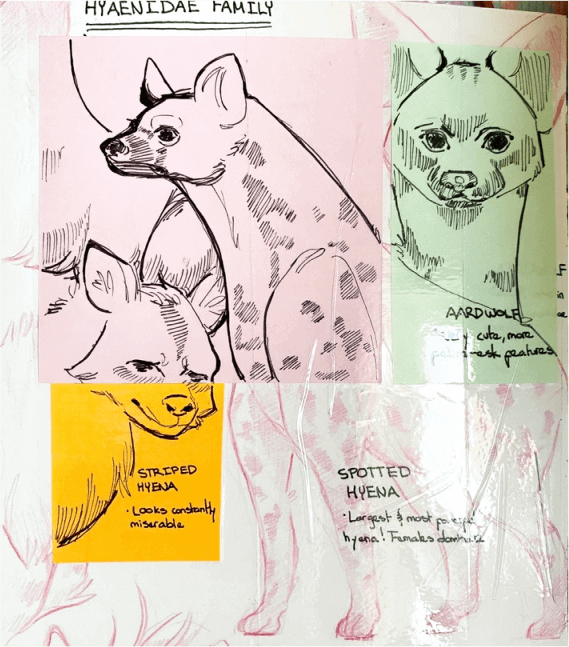 HYAENIDAE FAMILY
AARDWOLF
cute, more
-esk features
STRIPED
HYENA
· Looks constantly
miserable
SPOTTED
HYENA
· Largest & most powerful
hyena! Females dominate